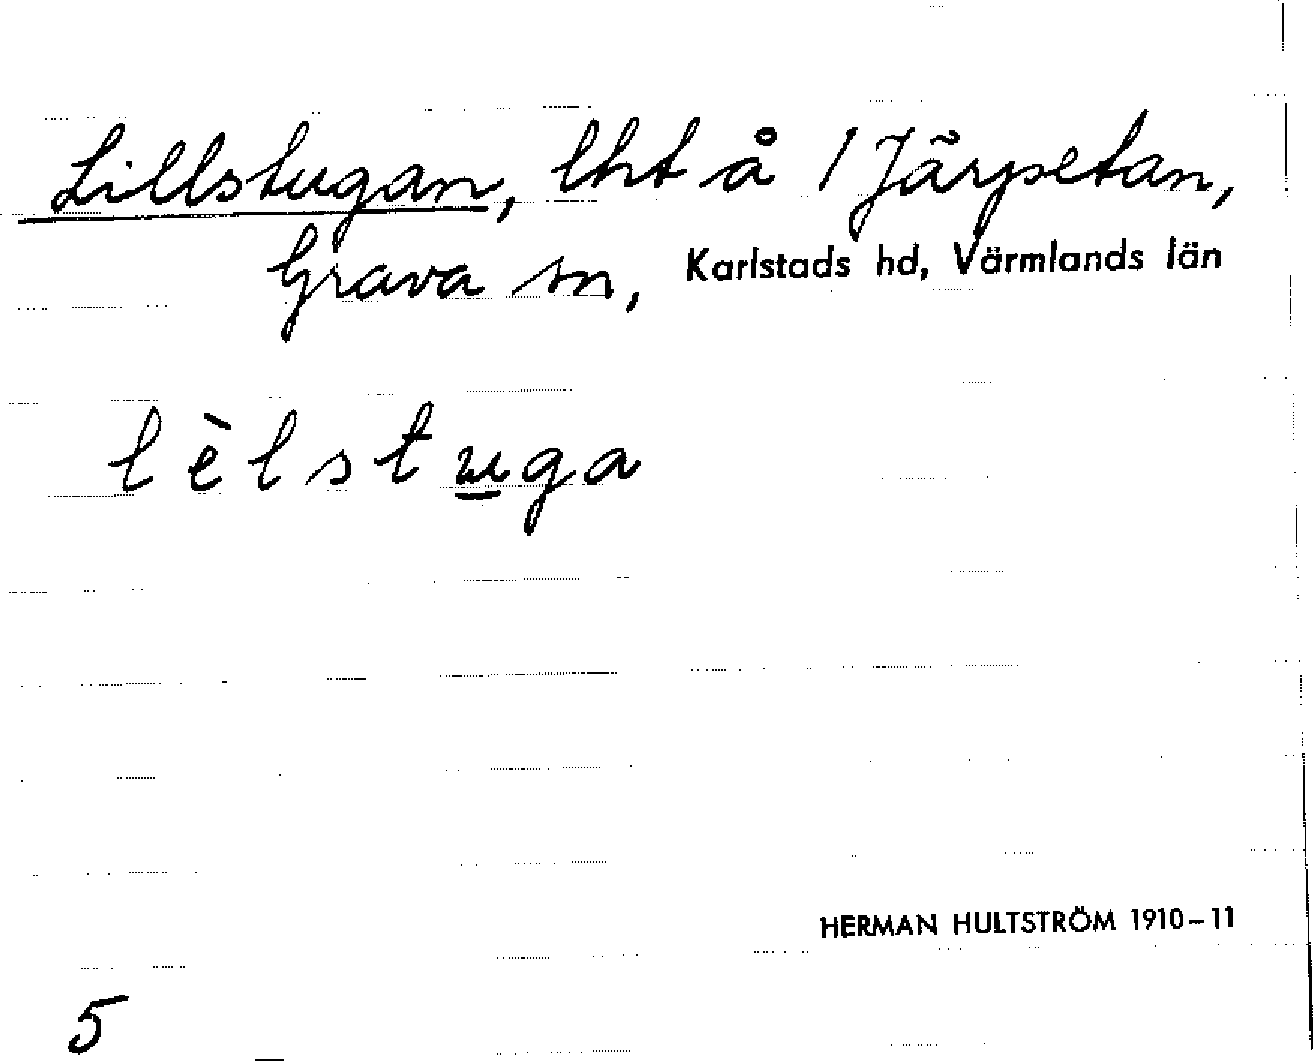 Lillstugan, lht å 1 Järpetan,
Grava sn, Karlstads hd, Värmlands län
lèlstuga
HERMAN HULTSTRÖM 1910–11
5